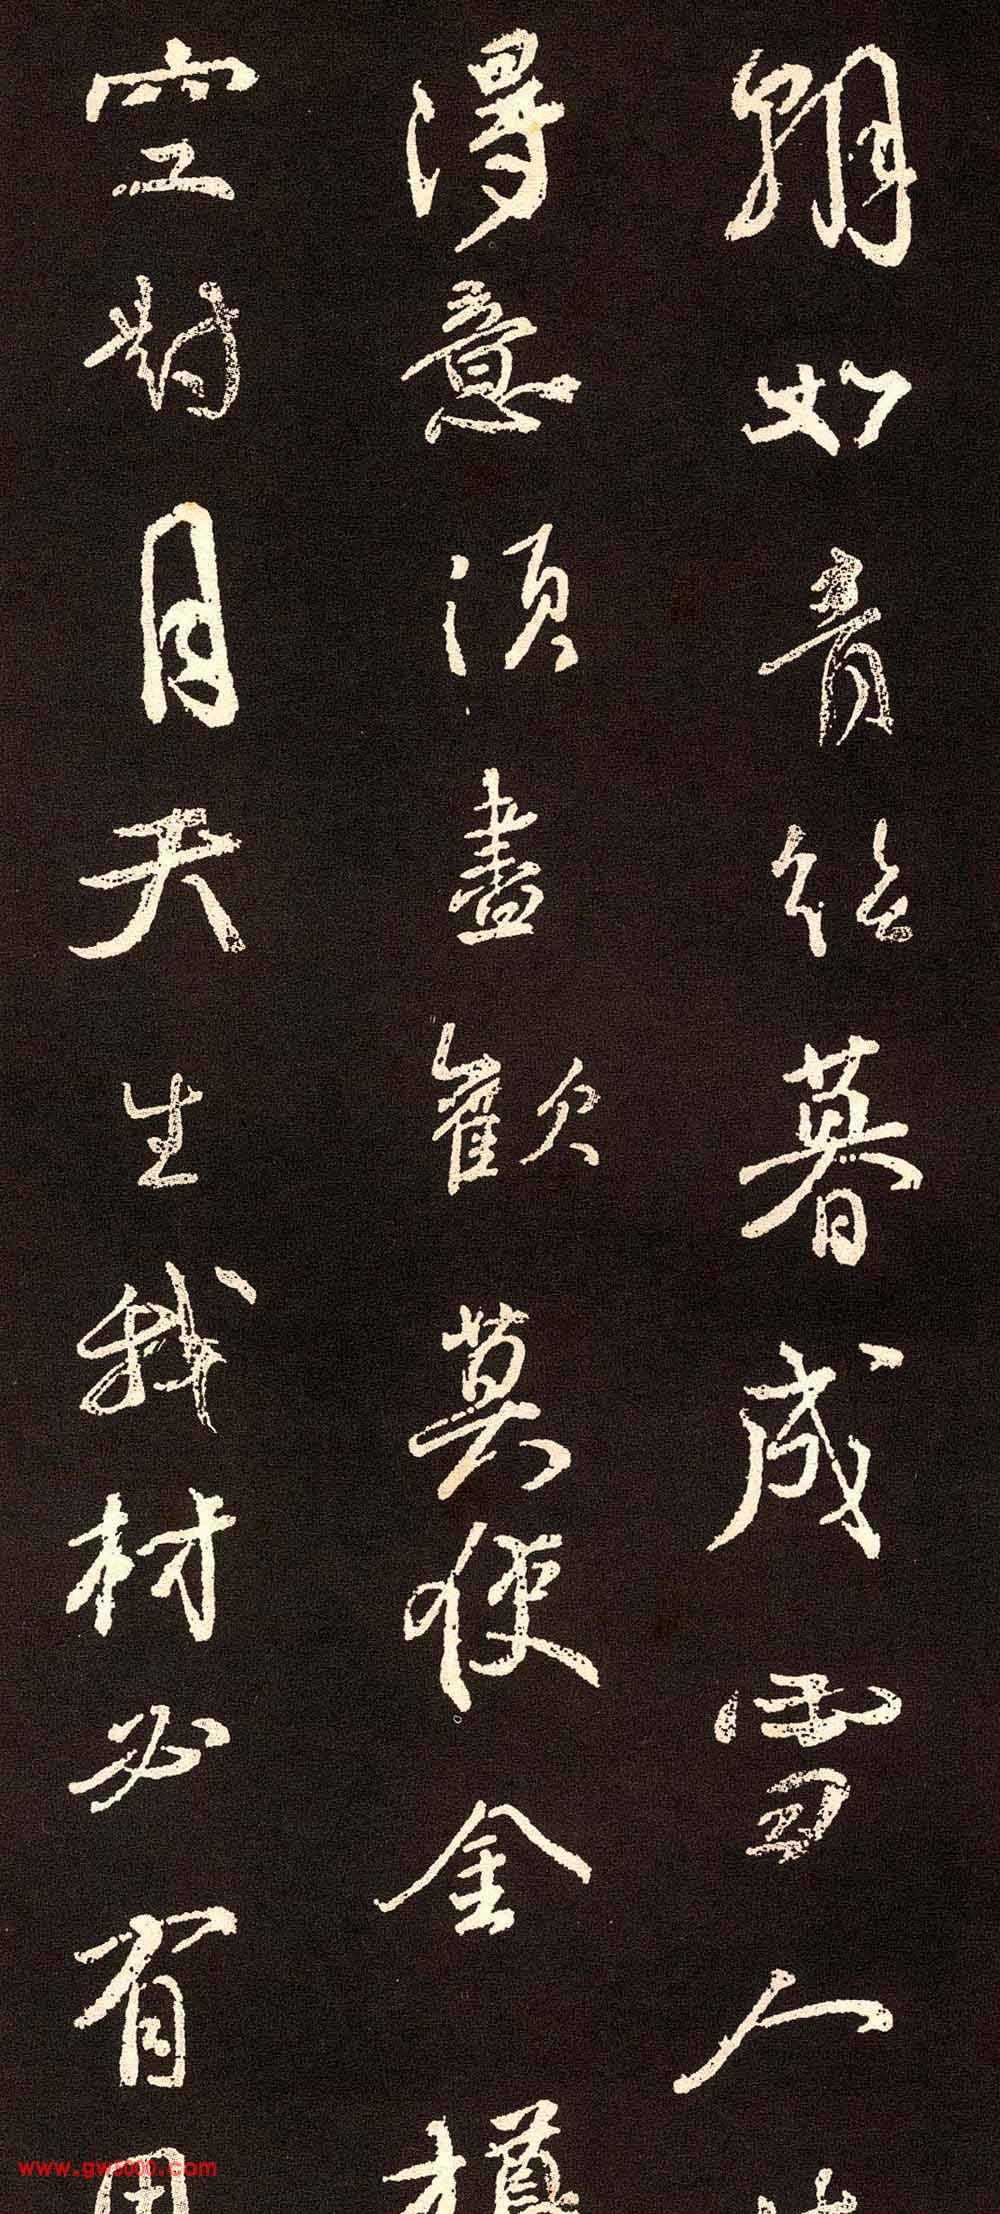 朝如青絲暮成雪人
得意須盡歡莫使金樽
空對月天生我材必有用
www.gw5000.com